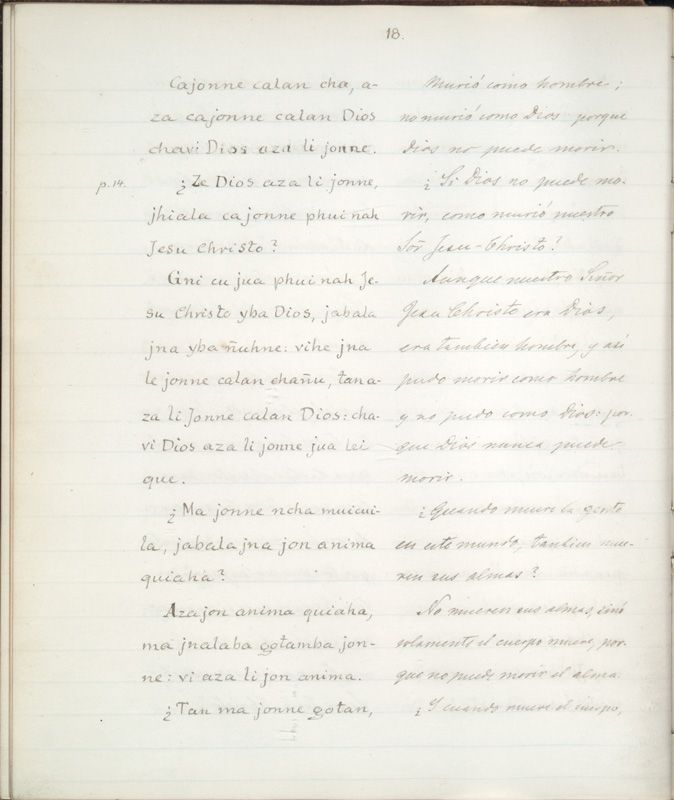 18.
Cajonne calan cha, a-
za cajonne calan Dios
chavi Dios aza li jonne.
p.14.
¿Ze Dios aza li jonne,
jhiala cajonne phui nah
Jesu Christo?
Gni cu jua phui nah Je-
su Christo yba Dios, jabala
jna yba ñuhne: vihe jna
le jonne calan chañu, tana-
za li Jonne calan Dios: cha-
vi Dios aza li jonne jua lei
que.
¿Ma jonne ncha muicui-
la, jabala jna jon anima
quiaha?
Aza jon anima quiaha,
ma jnalaba gotamba jon-
ne: vi aza li jon anima.
¿Tan ma jonne gotan,
Murió como hombre;
no murió como Dios porque
Dios no puede morir.
¿Si Dios no puede mo-
rir, como murió nuestro
Sor̃ Jesu-Christo?
Aunque nuestro Señor
Jesu Christo era Dios,
era tambien hombre, y así
pudo morir como hombre
y no pudo como Dios: por-
que Dios nunca puede
morir.
¿Quando muere la gente
en este mundo, tambien mue-
ren sus almas?
No mueren sus almas, sinó
solamente el cuerpo muere, por-
que no puede morir el alma.
¿Y cuando muere el cuerpo,